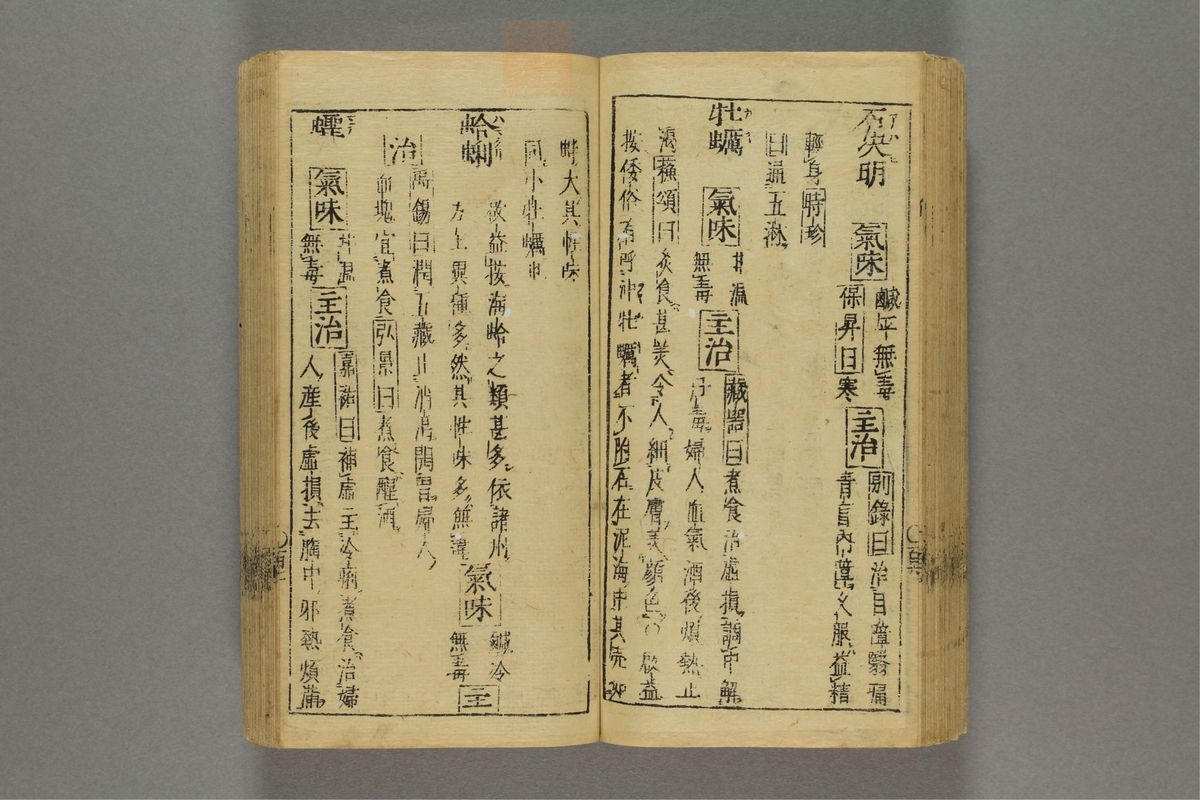 石决明
氣味
鹹平無毒
保昇曰寒
主治
別錄曰治目障翳痛
青盲內障久服益精
輕身時珍
曰通五淋
牡蠣
氣味
甘溫
無毒
主治
藏器曰煮食治虛損調中解
丹毒婦人血氣酒後煩熱止
渴蘇頌曰炙食甚美令人細皮膚美顏色 啟益
按倭俗所呼 牡蠣者不附石在泥海中其殼如
蛤大其性味
同小牡蠣也
蛤蜊
啟益按海蛤之類甚多依諸州
方土異種多然其性味多無違
氣味
鹹冷
無毒
主
治
禹錫曰潤五藏止消渴開胃婦人
血塊宜煮食弘景曰煮食醒酒
蟶
氣味
甘溫
無毒
主治
嘉祐曰補虛主冷痢煮食治婦
人產後虛損去胸中邪熱煩滿